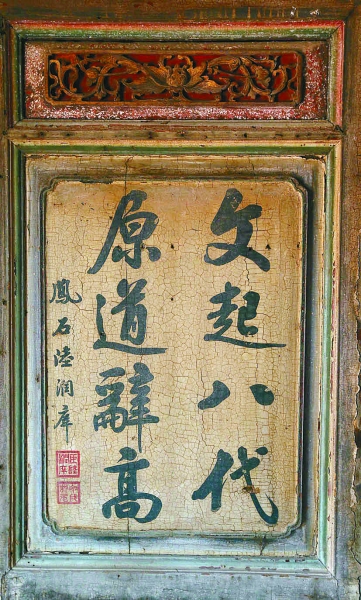 文起八代
原道辭高
鳳石陸潤庠